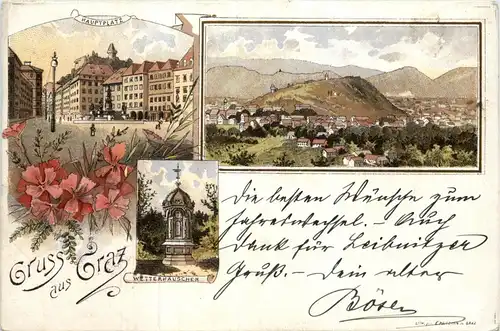 HAUPTPLATZ
Gruss
aus Graz
WETTERHÄUSCHEN
Die besten Wünsche zum
Jahreswechsel. – Auch
Dank für Leibnitzer
Gruß. – Dein alter
Böser